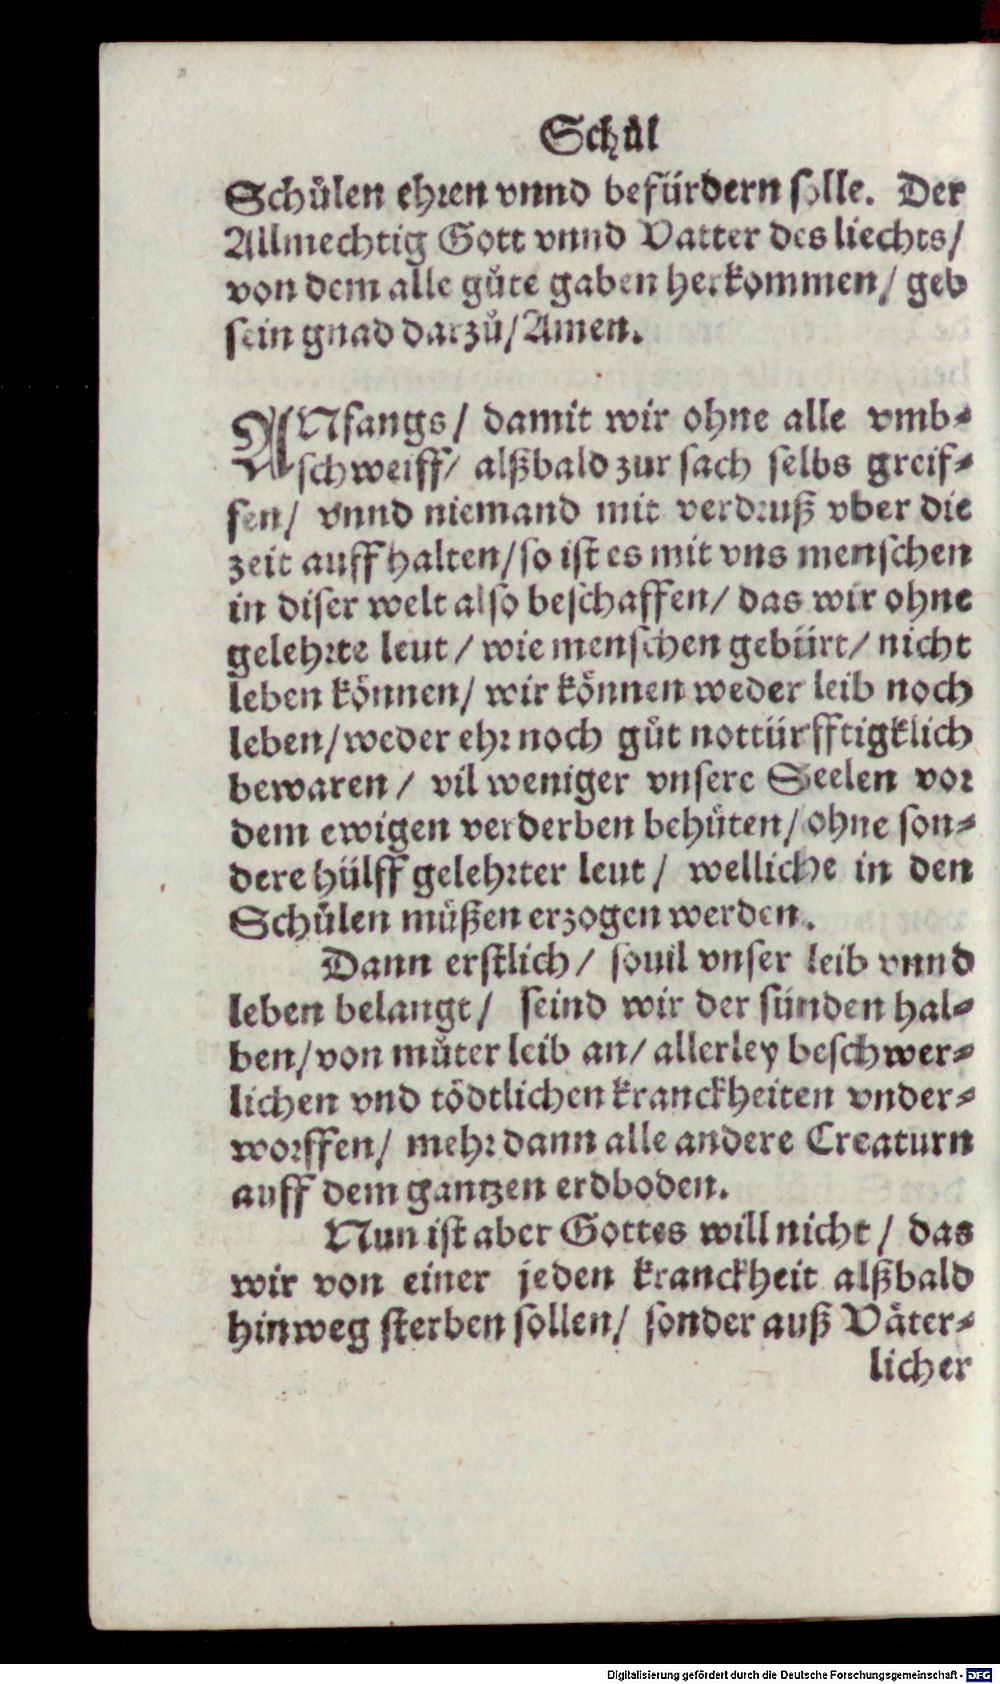 Schůl
Schůlen ehren vnnd befürdern solle. Der
Allmechtig Gott vnnd Vatter des liechts/
von dem alle gůte gaben herkommen/ geb
sein gnad darzů/ Amen.
ANfangs/ damit wir ohne alle vmb-
schweiff/ alßbald zur sach selbs greif-
fen/ vnnd niemand mit verdruß vber die
zeit auffhalten/ so ist es mit vns menschen
in diser welt also beschaffen/ das wir ohne
gelehrte leut/ wie menschen gebürt/ nicht
leben können/ wir können weder leib noch
leben/ weder ehr noch gůt nottürfftigklich
bewaren/ vil weniger vnsere Seelen vor
dem ewigen verderben behüten/ ohne son-
dere hülff gelehrter leut/ welliche in den
Schůlen müßen erzogen werden.
Dann erstlich/ souil vnser leib vnnd
leben belangt/ seind wir der sünden hal-
ben/ von můter leib an/ allerley beschwer-
lichen vnd tödtlichen kranckheiten vnder-
worffen/ mehr dann alle andere Creaturn
auff dem gantzen erdboden.
Nun ist aber Gottes will nicht/ das
wir von einer jeden kranckheit alßbald
hinweg sterben sollen/ sonder auß Väter-
licher
Digitalisierung gefördert durch die Deutsche Forschungsgemeinschaft - DFG